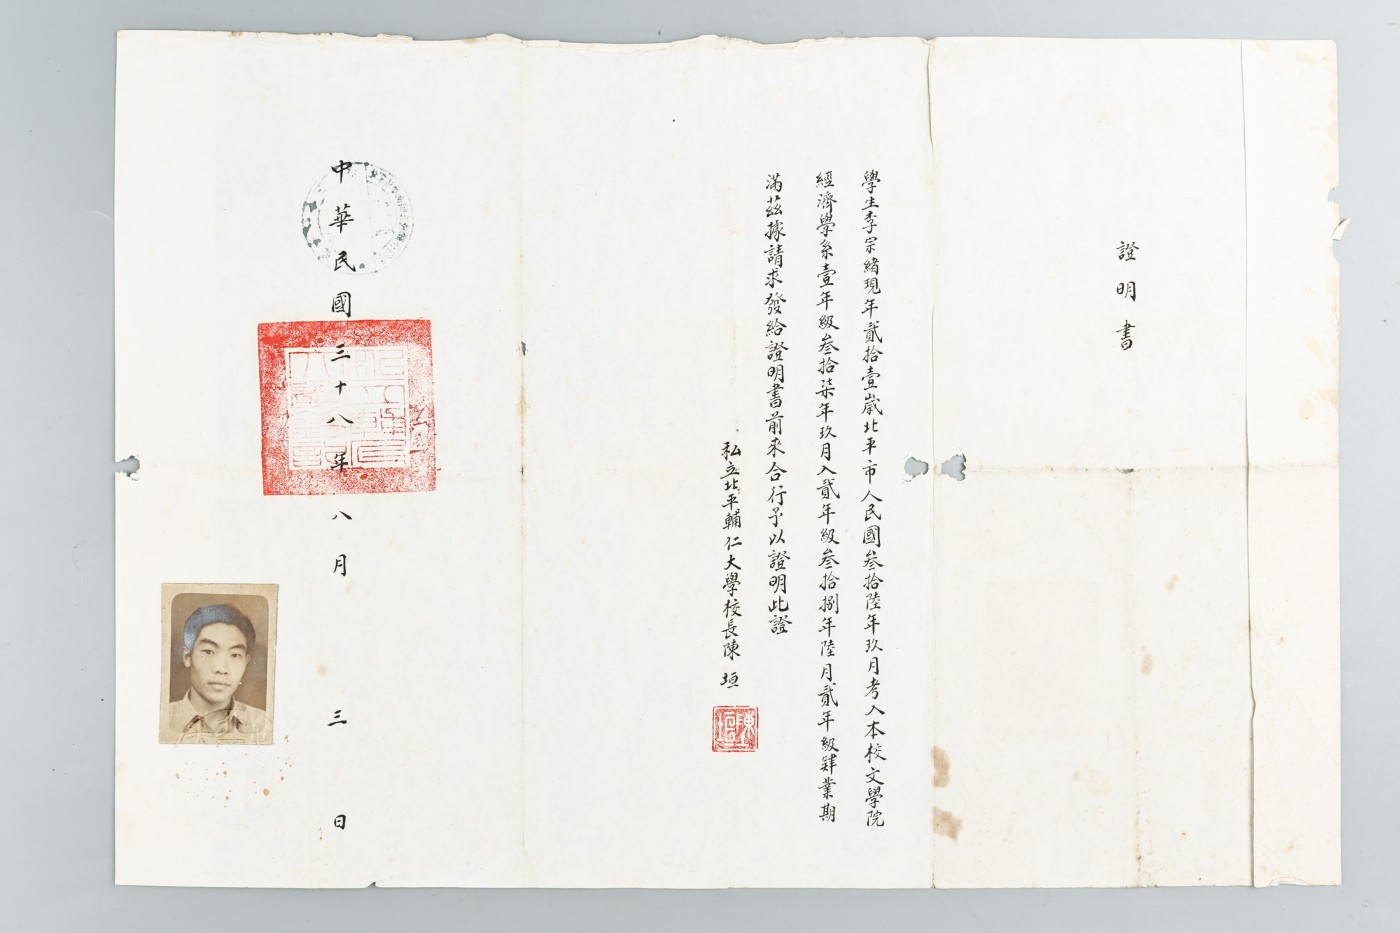 證明書
學生李宗緒現年貳拾壹歲北平市人民國叁拾陸年玖月考入本校文學院
經濟學系壹年級叁拾柒年玖月入貳年級叁拾捌年陸月貳年級肄業期
滿茲據請求發給證明書前來合行予以證明此證
私立北平輔仁大學校長陳垣
陳垣
中華民國三十八年八月三日